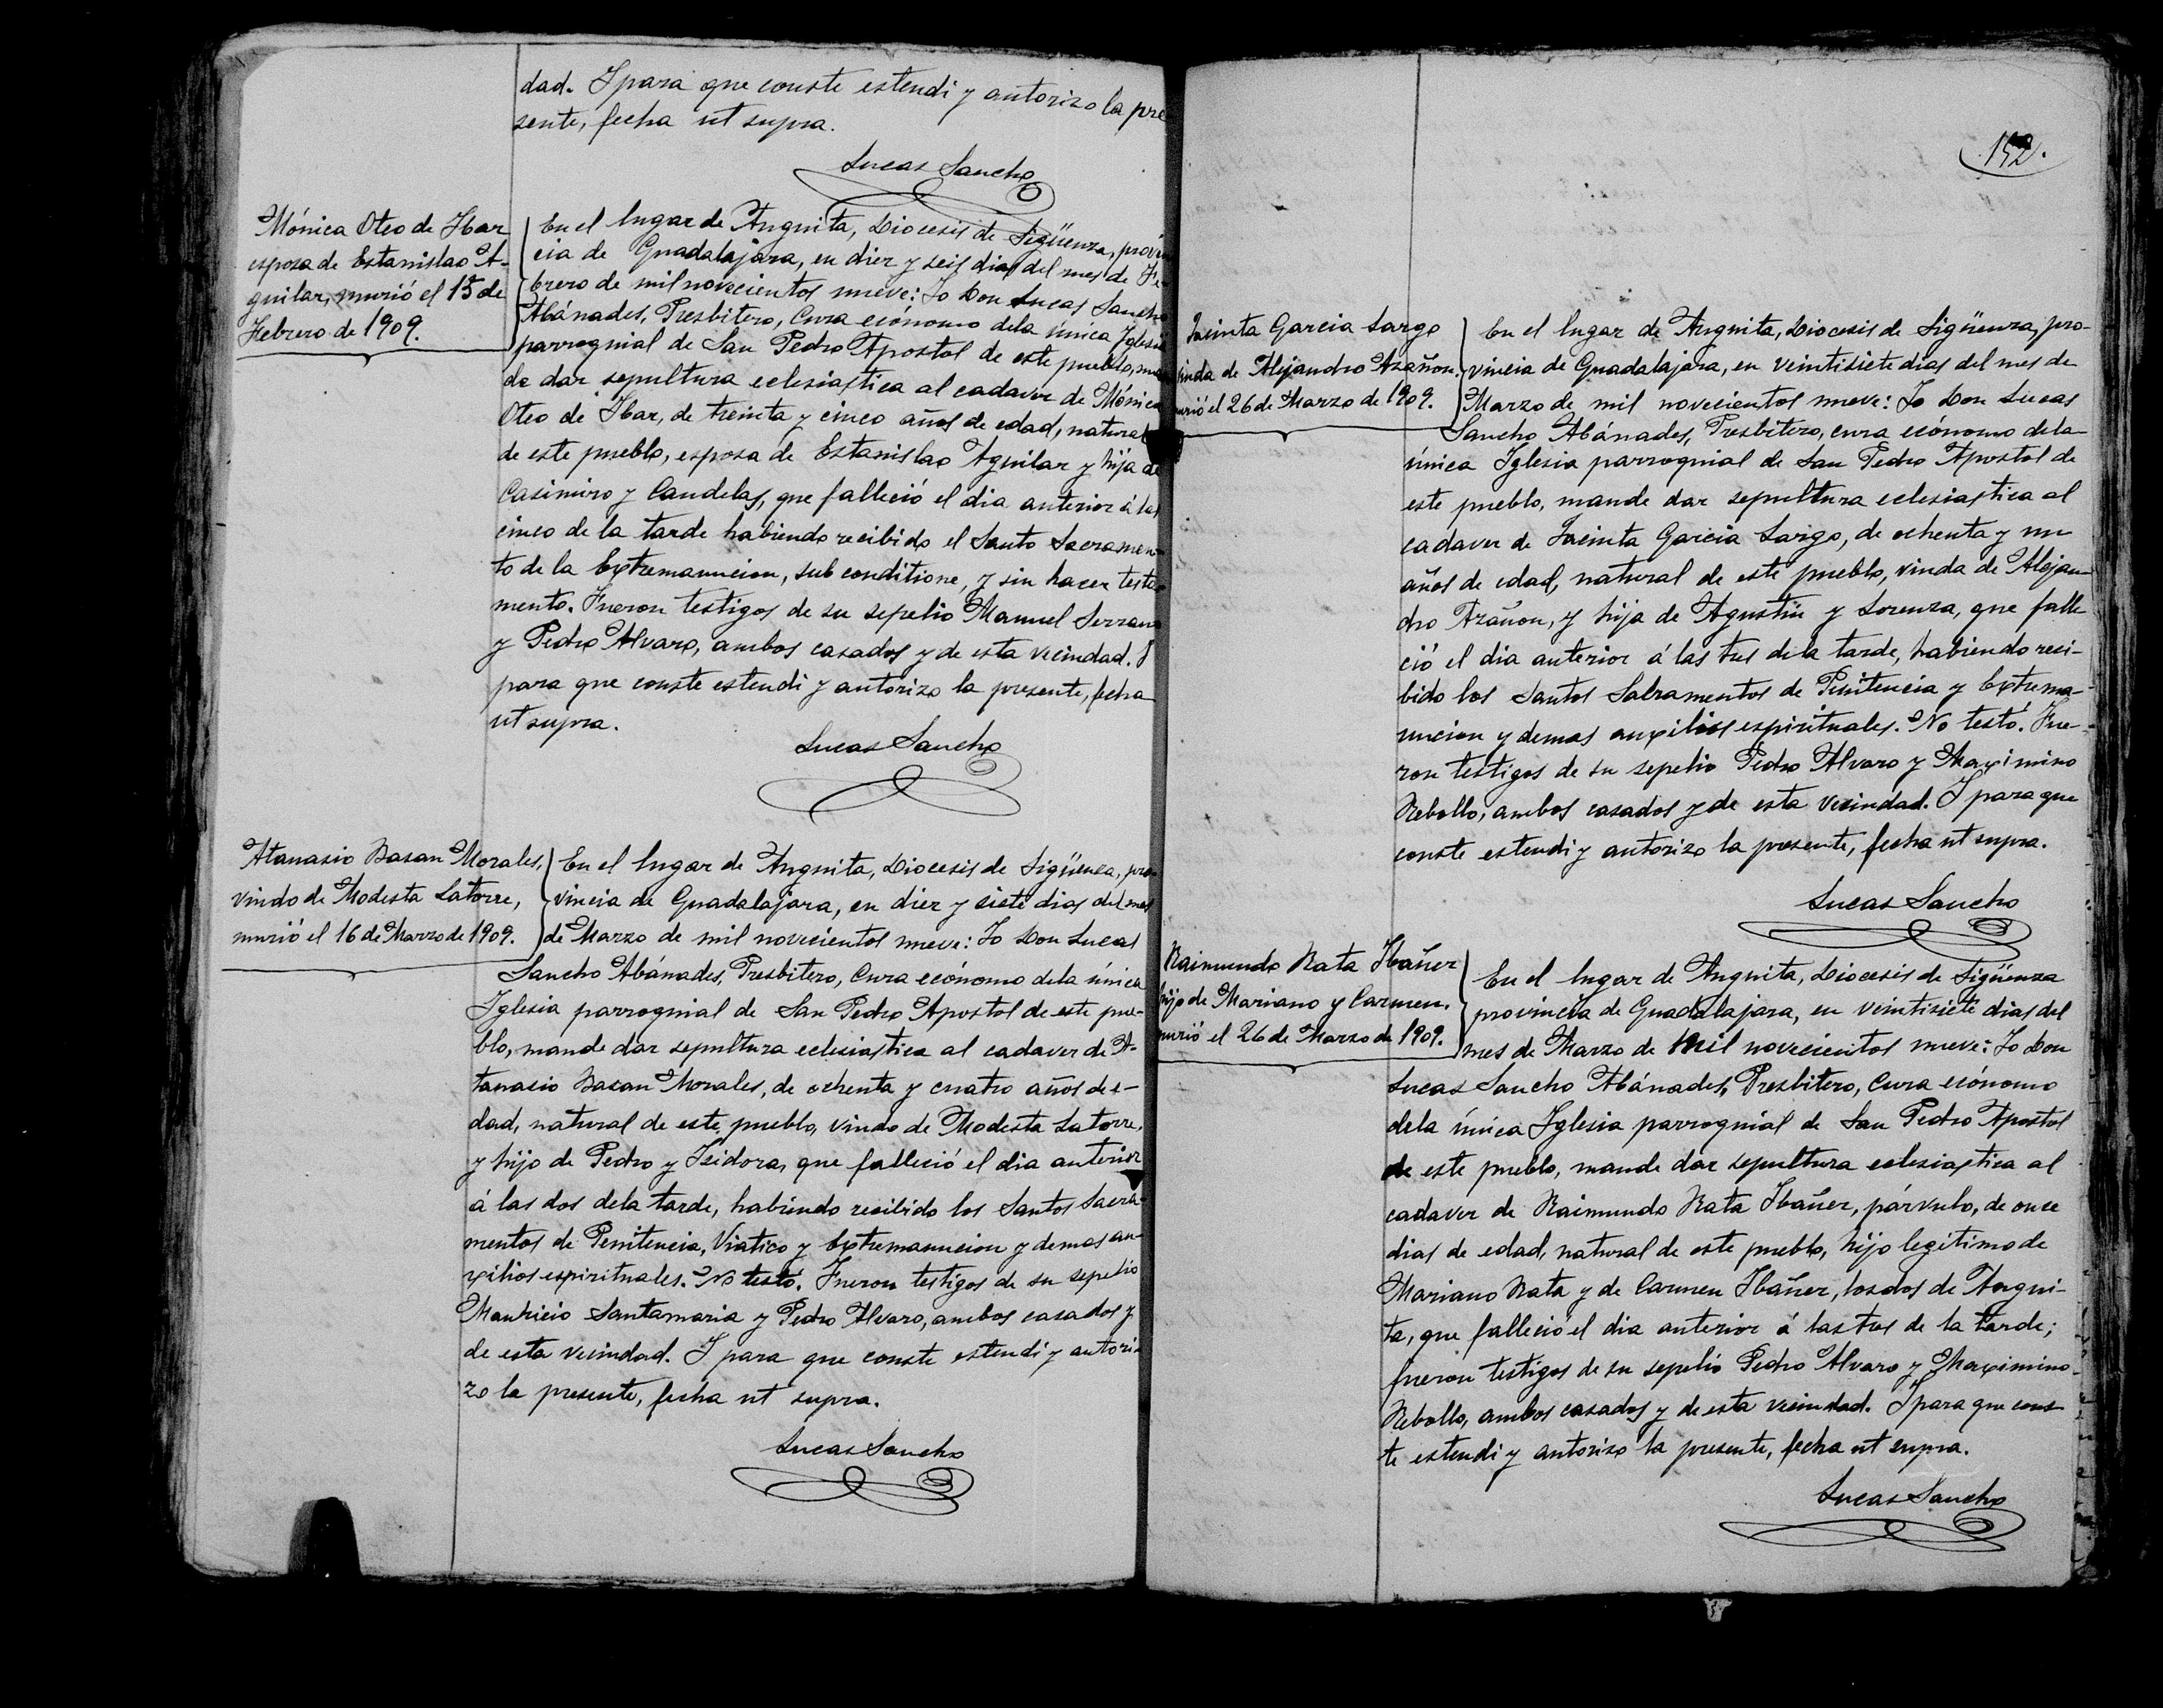 dad. Y para que conste estendi y autorizo la pre
sente, fecha ut supra.
Lucas Sancho
Mónica Oteo de Ibar
esposa de Estanislao A-
guilar, murió el 15 de
Febrero de 1909.
En el lugar de Anguita, Diocesis de Sigüenza, provin
cia de Guadalajara, en diez y seis dias del mes de Fe-
brero de mil novecientos nueve: Yo Don Lucas Sancho
Abánades, Presbitero, Cura ecónomo dela única Iglesia
parroquial de San Pedro Apostol de este pueblo, man
de dar sepultura eclesiastica al cadaver de Mónica
Oteo de Ibar, de treinta y cinco años de edad, natural
de este pueblo, esposa de Estanislao Aguilar y hija de
Casimiro y Candelas, que falleció el dia anterior á las
cinco de la tarde habiendo recibido el Santo Sacramen-
to de la Extremauncion, sub conditione, y sin hacer testa-
mento. Fueron testigos de su sepelio Manuel Serrano
y Pedro Alvaro, ambos casados y de esta vecindad. Y
para que conste estendi y autorizo la presente, fecha
ut supra.
Lucas Sancho
Atanasio Bazan Morales,
viudo de Modesta Latorre,
murió el 16 de Marzo de 1909.
En el lugar de Anguita, Diocesis de Sigüenza, pro-
vincia de Guadalajara, en diez y siete dias del mes
de Marzo de mil novecientos nueve: Yo Don Lucas
Sancho Abánades, Presbitero, Cura ecónomo dela única
Iglesia parroquial de San Pedro Apostol de este pue-
blo, mande dar sepultura eclesiastica al cadaver de A-
tanasio Bazan Morales, de ochenta y cuatro años de e-
dad, natural de este pueblo, viudo de Modesta Latorre,
y hijo de Pedro y Isidora, que falleció el dia anterior
á las dos dela tarde, habiendo recibido los Santos Sacra-
mentos de Penitencia, Viatico y Extremauncion y demas au-
xilios espirituales. No testó. Fueron testigos de su sepelio
Mauricio Santamaria y Pedro Alvaro, ambos casados y
de esta vecindad. Y para que conste estendi y autori-
zo la presente, fecha ut supra.
Lucas Sancho
152.
Jacinta Garcia Largo
viuda de Alejandro Azañon.
murió el 26 de Marzo de 1909.
En el lugar de Anguita, Diocesis de Sigüenza, pro-
vincia de Guadalajara, en veintisiete dias del mes de
Marzo de mil novecientos nueve: Yo Don Lucas
Sancho Abánades, Presbitero, cura ecónomo dela
única Iglesia parroquial de San Pedro Apostol de
este pueblo, mande dar sepultura eclesiastica al
cadaver de Jacinta Garcia Largo, de ochenta y un
años de edad, natural de este pueblo, viuda de Alejan-
dro Azañon, y hija de Agustin y Lorenza, que falle-
ció el dia anterior á las tres dela tarde, habiendo reci-
bido los Santos Sacramentos de Penitencia y Extrema-
uncion y demas auxilios espirituales. No testó. Fue-
ron testigos de su sepelio Pedro Alvaro y Maximino
Rebollo, ambos casados y de esta vecindad. Y para que
conste estendi y autorizo la presente, fecha ut supra.
Lucas Sancho
Raimundo Rata Ibañez
hijo de Mariano y Carmen.
murió el 26 de Marzo de 1909.
En el lugar de Anguita, Diocesis de Sigüenza
provincia de Guadalajara, en veintisiete dias del
mes de Marzo de mil novecientos nueve: Yo Don
Lucas Sancho Abánades, Presbitero, Cura ecónomo
dela única Iglesia parroquial de San Pedro Apostol
de este pueblo, mande dar sepultura eclesiastica al
cadaver de Raimundo Rata Ibañez, párvulo, de once
dias de edad, natural de este pueblo, hijo legitimo de
Mariano Rata y de Carmen Ibañez, los dos de Angui-
ta, que falleció el dia anterior á las tres de la tarde;
fueron testigos de su sepelio Pedro Alvaro y Maximino
Rebollo, ambos casados y de esta vecindad. Y para que cons-
te estendi y autorizo la presente, fecha ut supra.
Lucas Sancho